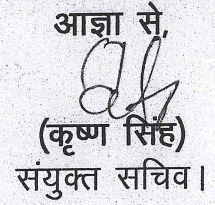 आज्ञा से,
(कृष्ण सिंह)
संयुक्त सचिव।